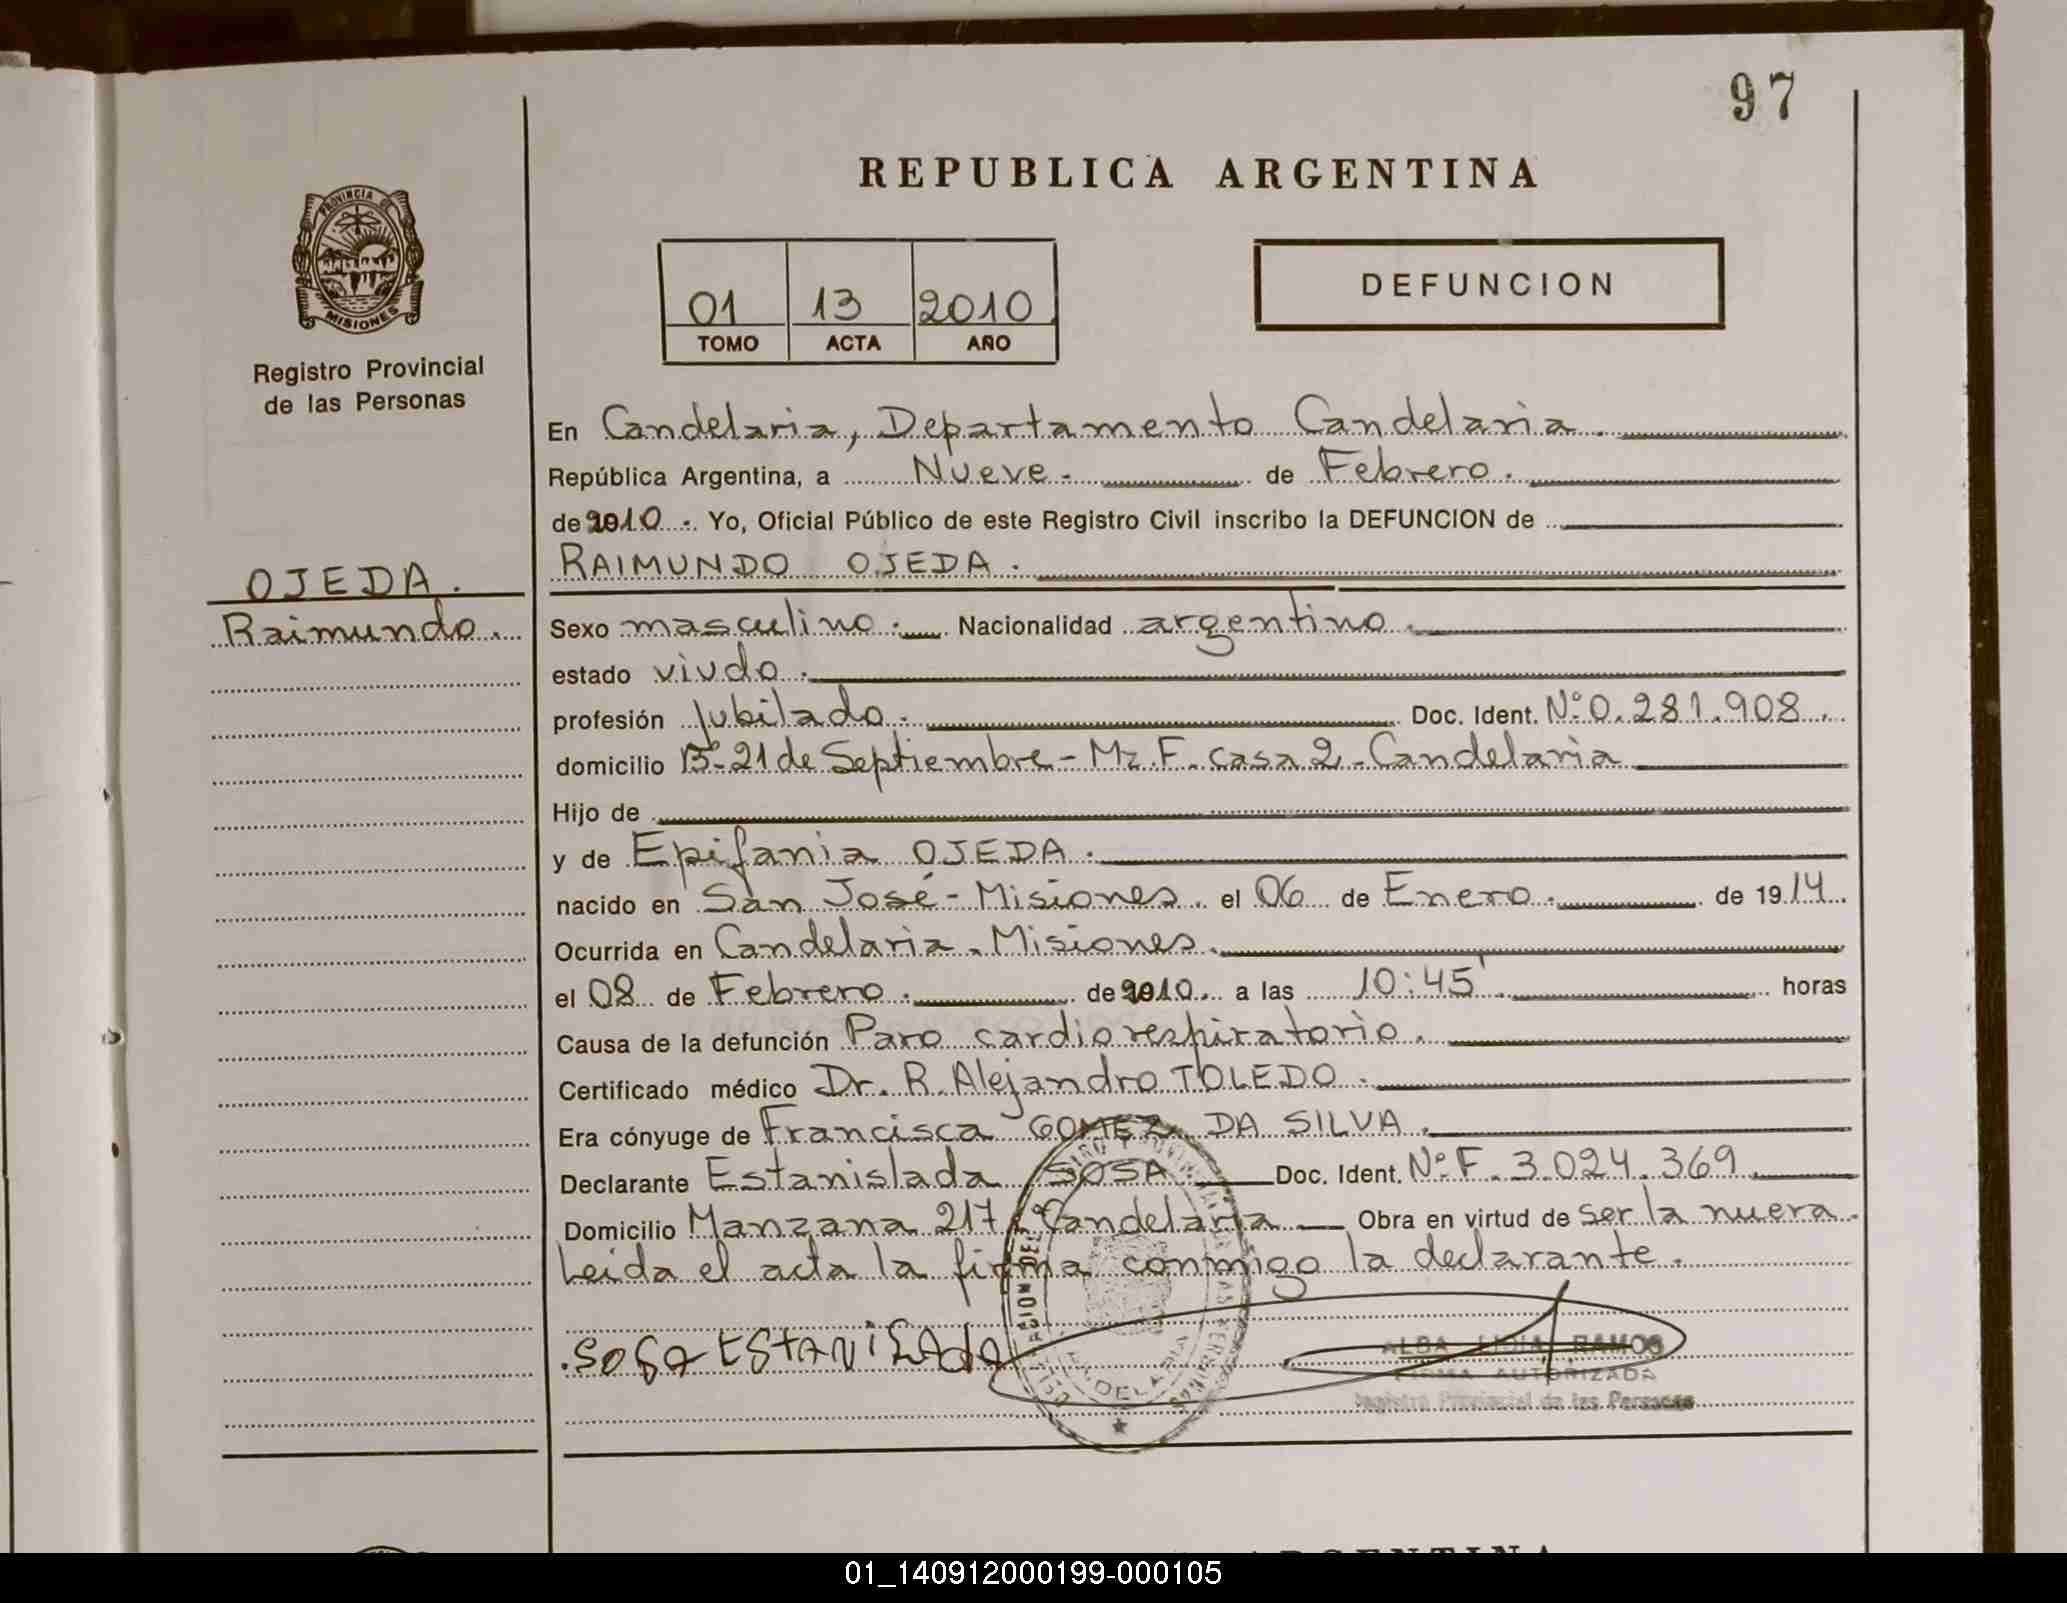 97
REPUBLICA ARGENTINA
PROVINCIA DE
MISIONES
Registro Provincial
de las Personas
DEFUNCION
01 13 2010
TOMO ACTA AÑO
En Candelaria, Departamento Candelaria.
República Argentina, a Nueve.- de Febrero.
de 2010.- Yo, Oficial Público de este Registro Civil inscribo la DEFUNCION de
RAIMUNDO OJEDA.
OJEDA.
Raimundo.
Sexo masculino.- Nacionalidad argentino.
estado viudo.
profesión Jubilado.- Doc. Ident. Nº 0.281.908.
domicilio Bº-21 de Septiembre-Mz.F.casa 2.-Candelaria
Hijo de
y de Epifania OJEDA.
nacido en San José-Misiones. el 06 de Enero. de 1914.
Ocurrida en Candelaria.Misiones.
el 08 de Febrero. de 2010. a las 10:45' horas
Causa de la defunción Paro cardiorespiratorio.
Certificado médico Dr. R. Alejandro TOLEDO.
Era cónyuge de Francisca GOMEZ DA SILVA.
Declarante Estanislada SOSA. Doc. Ident. Nº F. 3.024.369
Domicilio Manzana 217 Candelaria Obra en virtud de ser la nuera.
Leida el acta la firma conmigo la declarante.
SOSA ESTANISLADA
ALBA LIDIA RAMOS
FIRMA AUTORIZADA
Registro Provincial de las Personas
CANDELARIA
ARGENTINA
01_140912000199-000105